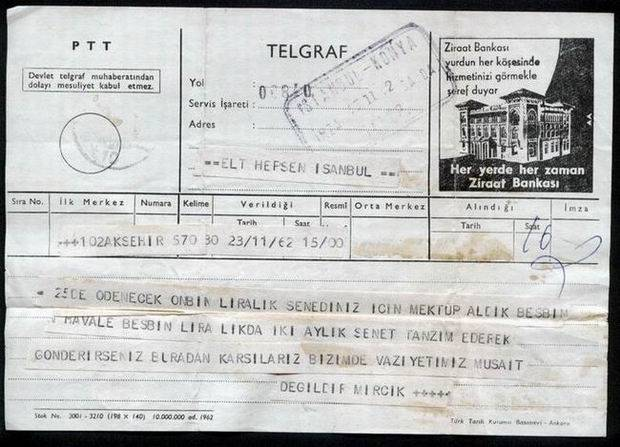 PTT
Devlet telgraf muhaberatından
dolayı mesuliyet kabul etmez.
TELGRAF
Yol :
Servis İşareti :
Adres :
ISTANBUL-KONYA
==ELT HEPSEN ISANBUL ==
Ziraat Bankası
yurdun her köşesinde
hizmetinizi görmekle
şeref duyar
Her yerde her zaman
Ziraat Bankası
Sıra No. İlk Merkez Numara Kelime Verildiği Resmî Orta Merkez Alındığı İmza
Tarih Saat Tarih Saat
+++102AKSEHIR 570 30 23/11/62 15/00
16
25DE ODENECEK ONBIN LIRALIK SENEDINIZ ICIN MEKTUP ALDIK BESBIN
HAVALE BESBIN LIRA LIKDA IKI AYLIK SENET TANZIM EDEREK
GONDERIRSENIZ BURADAN KARSILARIZ BIZIMDE VAZIYETIMIZ MUSAIT
DEGILDIR MIRCIK +++++
Stok No. 3001 - 3210 (198 X 140) 10.000.000 ad. 1962
Türk Tarih Kurumu Basımevi - Ankara